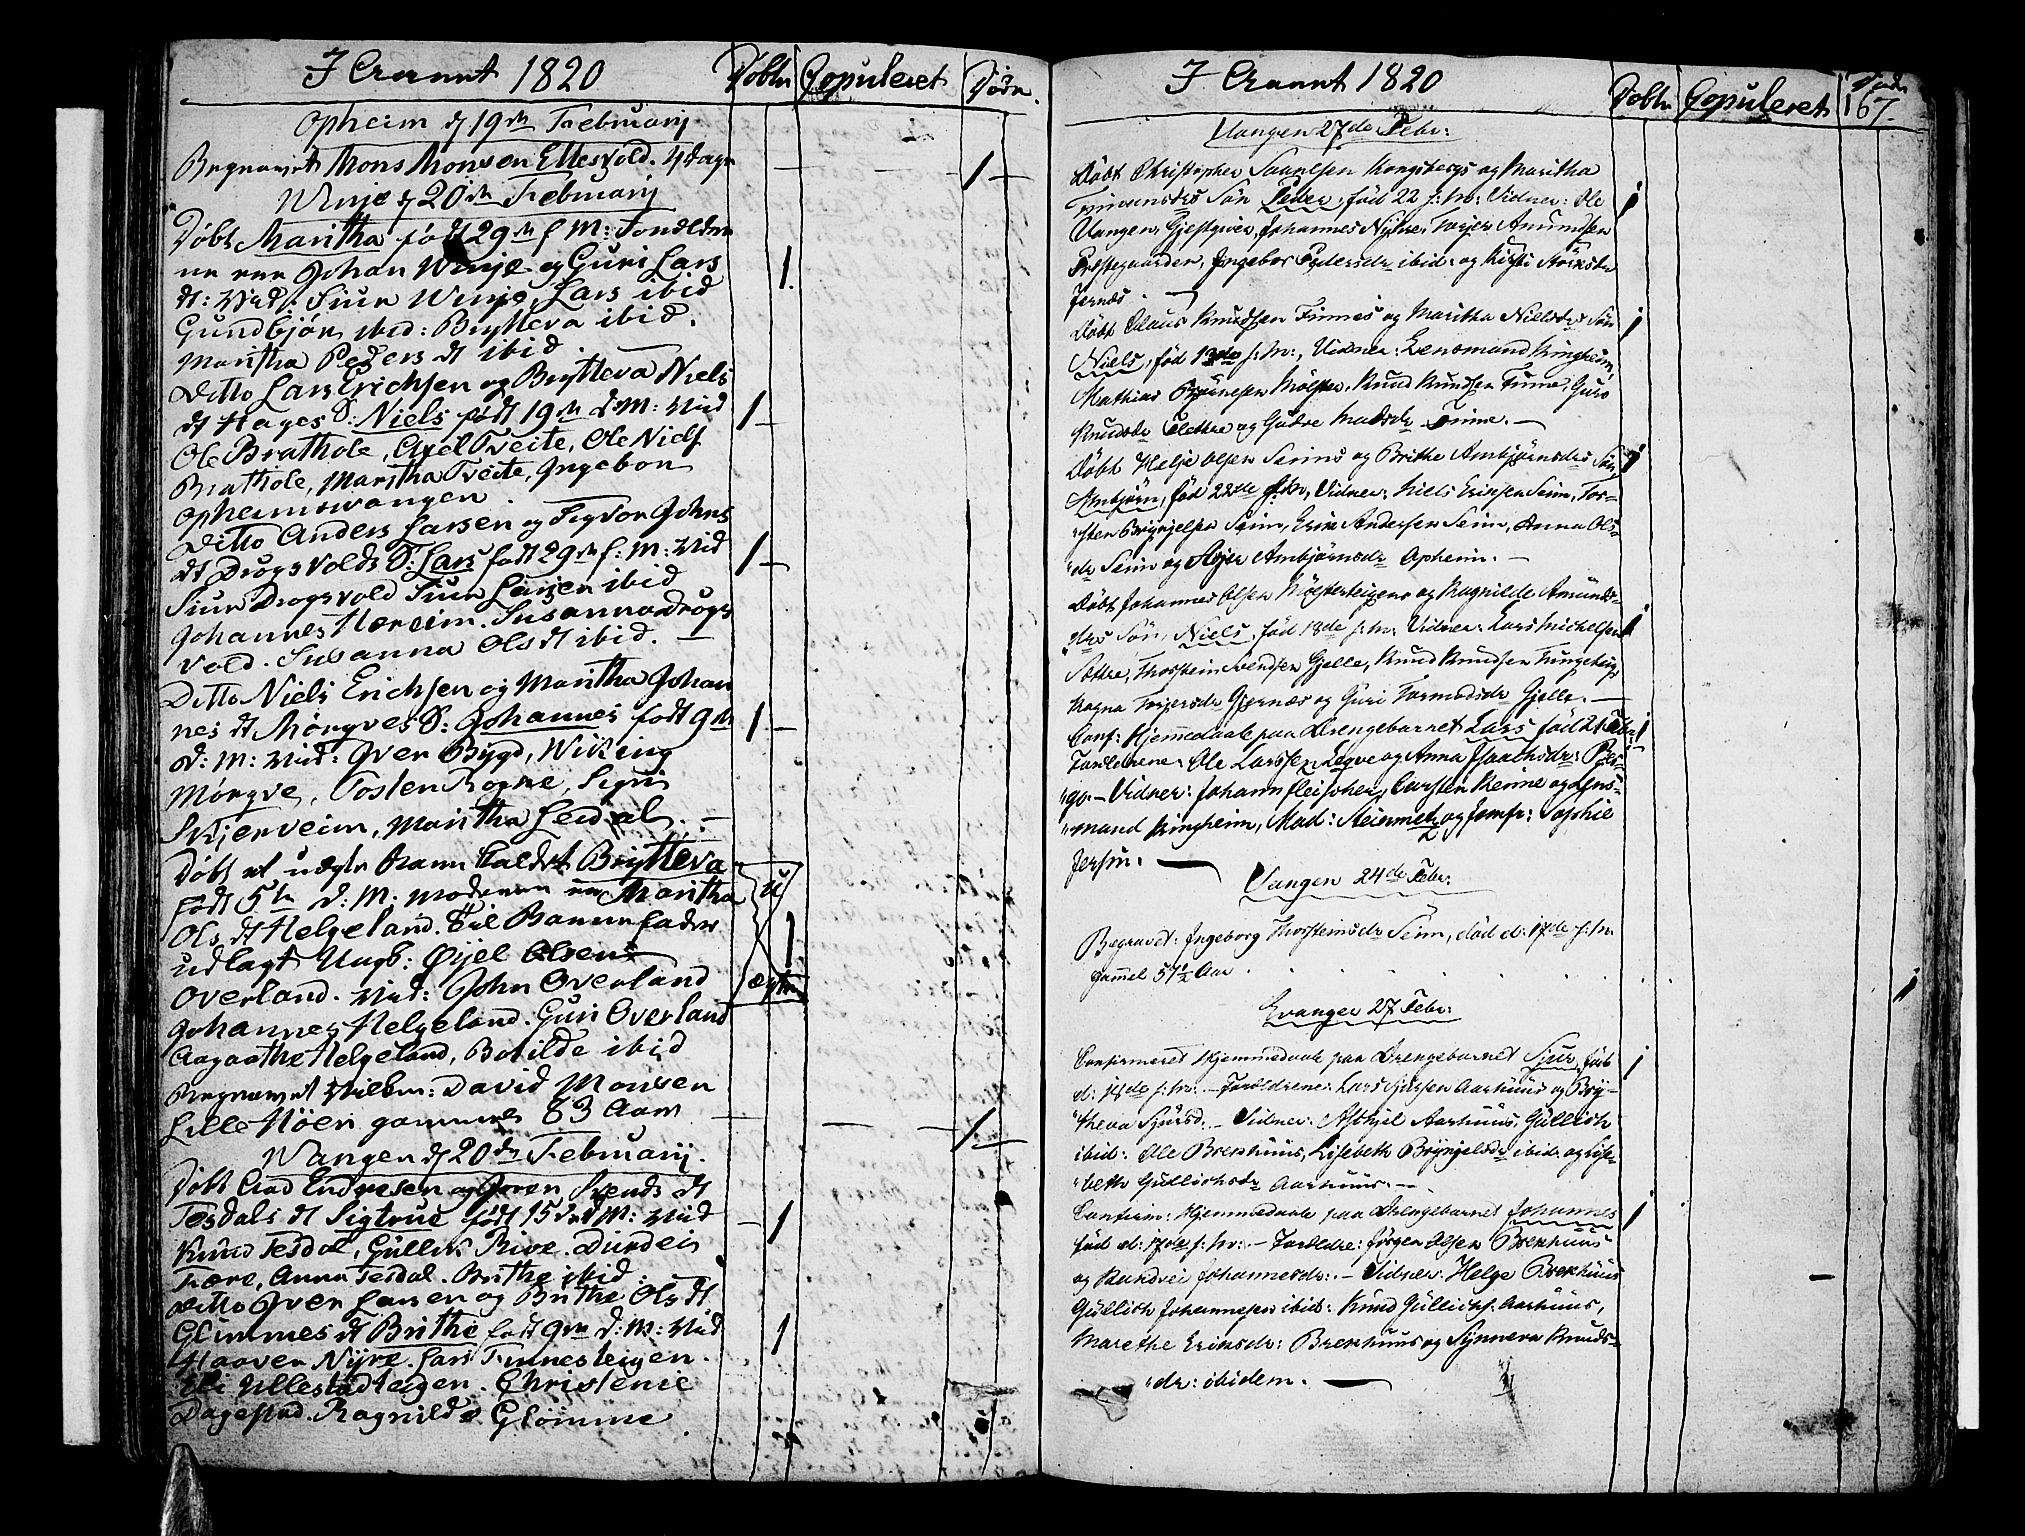 I Aaret 1820 Døbte Copuleret Døde.
Opheim d 19de Februarij
Begravet Mons Monsen Ellesvold. 4 dage
Winje d 20de Februarij
Døbt Maritha født 29de f: M: Forældre
ne ere Johan Winje og Guri Lars
dt: Vid: Siur Winje, Lars ibid
Gundbjør ibid: Brytteva ibid.
Maritha Peders dt ibid.
Ditto Lars Erichsen og Brytteva Niels
dt Hages S: Niels født 19de d: M: Vid
Ole Brathole, Axel Tveite, Ole Niels
Brathole, Maritha Tveite, Ingebor
Opheimsvangen.
Ditto Anders Larsen og Johns
dt Drogsvolds S: Lars født 29de f: M: Vid
Siur Drogsvold Siur Larsen ibid
Johannes Hæreim. Susanna Drogs
vold. Susanna Ols dt ibid.
Ditto Niels Erichsen og Maritha Johan
nes dt Mørqves S: Johannes født 9de
d: M: Vid: Iver Bygd, Wiking
Mørqve, Tosten Rogne, Sigri
Skjerveim, Maritha Leidal.
Døbt et uægte Barn kaldet Brytteva
født 5te d: M: Moderen er Maritha
Ols dt Helgeland. Til Barnefader
udlagt Ungk: Olsen
Overland. Vid: John Overland
Johannes Helgeland. Guri Overland
Aagaathe Helgeland, Botilde ibid
Begravet David Monsen
Lille Höen gammel 83 Aar
Wangen d 20de Februarij.
Døbt Aad Endresen og Joren Svends dt
Tesdals dt Sigtrue født 15de d M: Vid
Knud Tesdal, Gullik Rive. Durdei
Fære, Anna Tesdal. Brithe ibid.
Ditto Iver Larsen og Brithe Ols dt
Glimmes dt Brithe født 9de d: M: Vid
Haaver Nyre. Lars Finnesteigen.
Ullestadteigen. Christenie
Dagestad. Ragnilde Glömme
I Aaret 1820 Døbte Copuleret Døde 167.
Vangen 27de Febr:
Döbt Christopher Kongsberg og Maritha
Sön Peder, föd 22 f: M: Vidner: Ole
Vangen, Gjestgiver, Johannes Nyre, Torjer Amundsen
Præstegaarden, Ingebor Pedersdr ibid: og Kirsti
Jernæs.
Döbt Claus Knudsen Finnes og Maritha Nielsdrs Sön
Niels, föd 13de f: M:, Vidner: Lensmand Ringheim,
Mathias Mölster, Knud Knudsen Finne, Guro
Knudsdr og Gudve Madsdr Finne.
Döbt Helje Olsen Seims og Brithe Ambjörnsdrs Sön
Ambjörn, föd 22de f: M:, Vidner: Niels Erikssen Seim, Tor-
sten Brynjelsen Seim, Erik Andersen Seim, Anna Ols-
dr Seim og Ambjörnsdr Opheim.
Döbt Johannes Olsen Mölsterteigens og Ragnilde Amunds-
drs Sön, Niels, föd 18de f: M: Vidner: Lars Michelsen
Sættre, Thorstein Svendsen Gjelle, Knud Knudsen
Ragna Torjersdr Gjernæs og Guri Tormodsdr Gjelle.
Conf: Hjemmedaab paa Drengebarnet Lars föd 2 Febr:
Forældrene: Ole Larssen Legve og Anna Isaachsdr:
Vidner: Johan Fleischer, Carsten og Lens-
mand Ringheim, Mad: Steinmetz og Jomfr: Sophie
Jersin.
Vangen 24de Febr:
Begravet: Ingeborg Thorsteinsdr Seim, död d: 17de f: M:
gamel 57½ Aar.
Evanger 27 Febr:
Confirmeret Hjemmedaab paa Drengebarnet Siur, födt
d: 18de f: M: - Forældrene: Lars Sjursen Aarhuus og Bry-
theva Sjursd. - Vidner: Aslakjel Aarhuus, Gullich
ibid: Ole Brekhuus, Lisebeth Bryngelsdr ibid: og Lise-
beth Gullichsdr Aarhuus.
Confirm: Hjemmedaab paa Drengebarnet Johannes
föd d: 17de f: M: - Forældre: Jörgen Olsen Brekhuus
og Randvei Johannesdr: - Vidner: Helge Brekhuus
Gullich Johannesen ibid: Knud Gullichs. Aarhuus,
Marethe Eriksdr: Brekhuus og Synneva Knuds-
dr: ibidem.